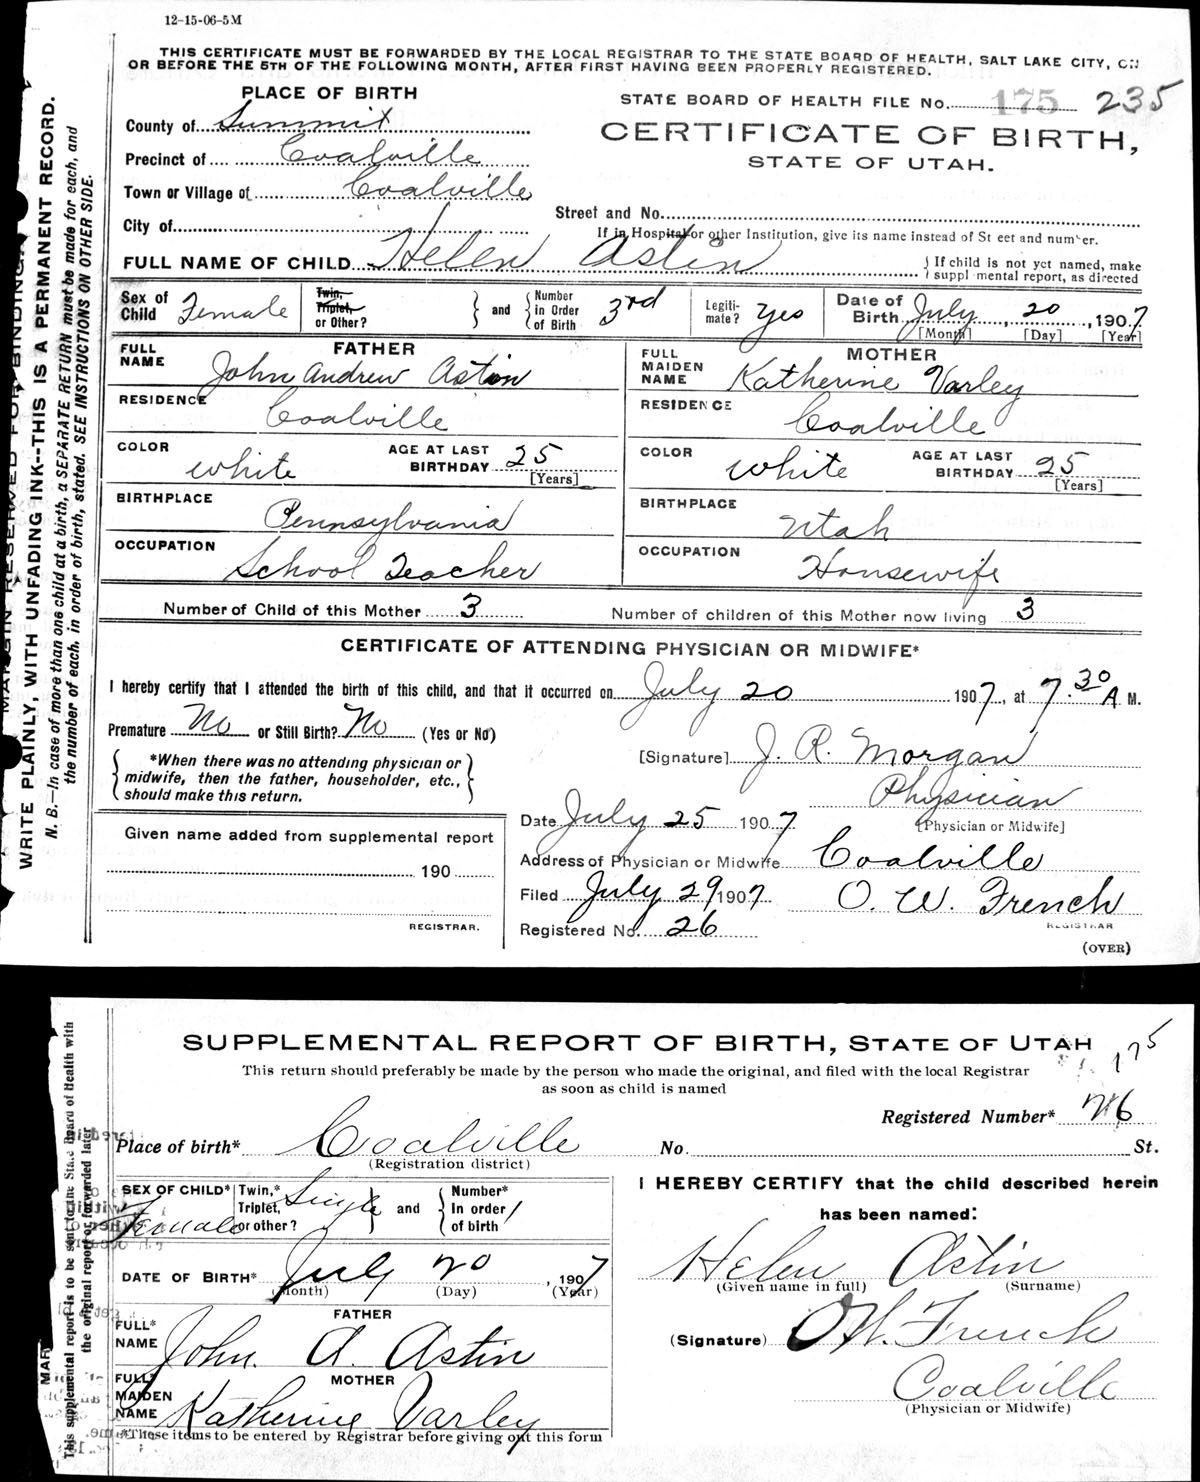 12-15-06-5M
THIS CERTIFICATE MUST BE FORWARDED BY THE LOCAL REGISTRAR TO THE STATE BOARD OF HEALTH, SALT LAKE CITY, ON
OR BEFORE THE 5TH OF THE FOLLOWING MONTH, AFTER FIRST HAVING BEEN PROPERLY REGISTERED.
PLACE OF BIRTH
STATE BOARD OF HEALTH FILE No. 175 235
County of Summit
CERTIFICATE OF BIRTH,
STATE OF UTAH.
Precinct of Coalville
Town or Village of Coalville
Street and No.
City of
If in Hospital or other Institution, give its name instead of Street and number.
FULL NAME OF CHILD Helen Astin
{ If child is not yet named, make
supplemental report, as directed
Sex of Child Female
Twin, Triplet, or Other? } and { Number in Order of Birth 3rd
Legitimate? Yes
Date of Birth July 20, 1907
[Month] [Day] [Year]
FATHER
FULL NAME John Andrew Astin
RESIDENCE Coalville
COLOR white AGE AT LAST BIRTHDAY 25 [Years]
BIRTHPLACE Pennsylvania
OCCUPATION School Teacher
MOTHER
FULL MAIDEN NAME Katherine Varley
RESIDENCE Coalville
COLOR white AGE AT LAST BIRTHDAY 25 [Years]
BIRTHPLACE Utah
OCCUPATION Housewife
Number of Child of this Mother 3 Number of children of this Mother now living 3
CERTIFICATE OF ATTENDING PHYSICIAN OR MIDWIFE*
I hereby certify that I attended the birth of this child, and that it occurred on July 20 1907, at 7.30 A M.
Premature No or Still Birth? No (Yes or No)
{ *When there was no attending physician or
midwife, then the father, householder, etc.,
should make this return. }
[Signature] J. R. Morgan
Physician
[Physician or Midwife]
Date July 25 1907
Address of Physician or Midwife Coalville
Filed July 29 1907 O. W. French
REGISTRAR
Registered No. 26
(OVER)
Given name added from supplemental report
190
REGISTRAR.
MARGIN RESERVED FOR BINDING
WRITE PLAINLY, WITH UNFADING INK--THIS IS A PERMANENT RECORD.
N. B.—In case of more than one child at a birth, a SEPARATE RETURN must be made for each, and
the number of each, in order of birth, stated. SEE INSTRUCTIONS ON OTHER SIDE.
SUPPLEMENTAL REPORT OF BIRTH, STATE OF UTAH
175
This return should preferably be made by the person who made the original, and filed with the local Registrar
as soon as child is named
Registered Number* 26
Place of birth* Coalville No. St.
(Registration district)
SEX OF CHILD* Female
Twin,* Triplet, or other? Single } and { Number* In order of birth 1
DATE OF BIRTH* July 20, 1907
(Month) (Day) (Year)
FATHER
FULL* NAME John. A. Astin
MOTHER
FULL* MAIDEN NAME Katherine Varley
*These items to be entered by Registrar before giving out this form
I HEREBY CERTIFY that the child described herein
has been named:
Helen Astin
(Given name in full) (Surname)
(Signature) O W. French
Coalville
(Physician or Midwife)
This supplemental report is to be sent to the State Board of Health with
the original report or forwarded later